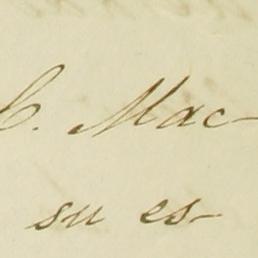 C. Mac-
su es-